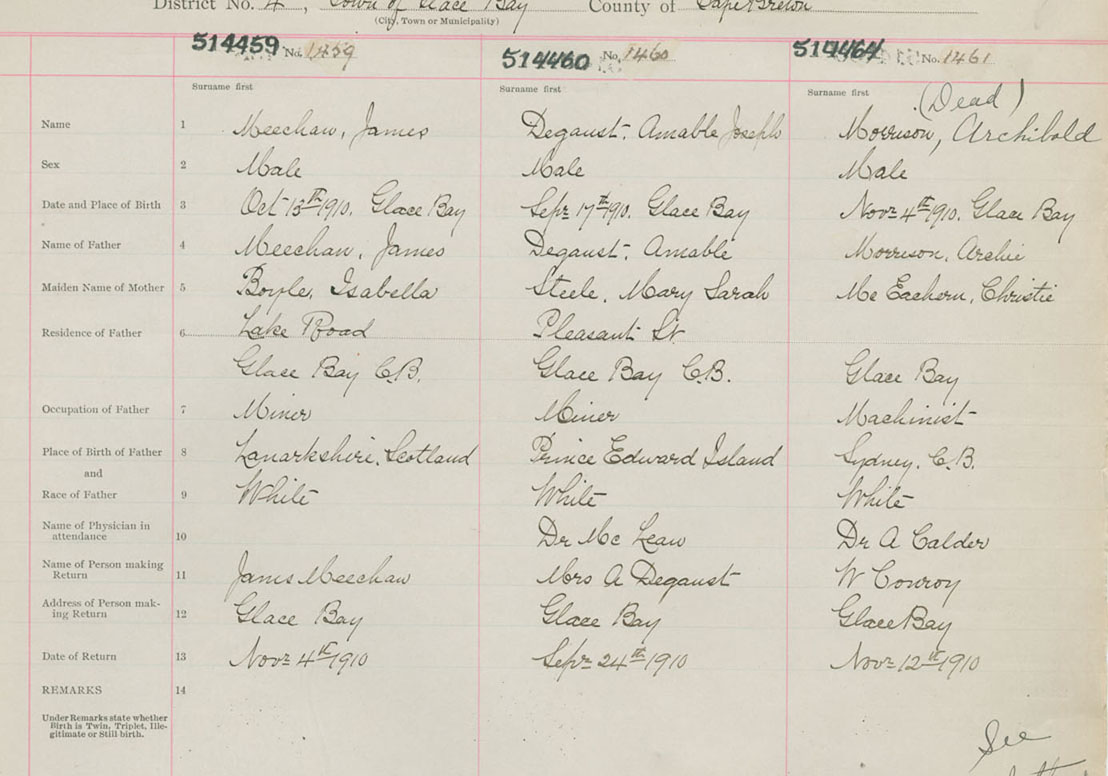 District No. 4, Town of Glace Bay County of Cape Breton
(City, Town or Municipality)
514459 No. 1459 514460 No. 1460 514464 No. 1461
Surname first Surname first Surname first (Dead)
Name 1 Meechan, James Degaust, Amable Joseph Morrison, Archibald
Sex 2 Male Male Male
Date and Place of Birth 3 Oct 13th 1910. Glace Bay Sepr 17th 1910. Glace Bay Novr 4th 1910. Glace Bay
Name of Father 4 Meechan, James Degaust, Amable Morrison, Archie
Maiden Name of Mother 5 Boyle, Isabella Steele, Mary Sarah Mc Eachern, Christie
Residence of Father 6 Lake Road Pleasant St.
Glace Bay C.B. Glace Bay C.B. Glace Bay
Occupation of Father 7 Miner Miner Machinist
Place of Birth of Father 8 Lanarkshire, Scotland Prince Edward Island Sydney, C.B.
and
Race of Father 9 White White White
Name of Physician in
attendance 10 Dr Mc Lean Dr A Calder
Name of Person making
Return 11 James Meechan Mrs A Degaust W Conroy
Address of Person mak-
ing Return 12 Glace Bay Glace Bay Glace Bay
Date of Return 13 Novr 4th 1910 Sepr 24th 1910 Novr 12th 1910
REMARKS 14
Under Remarks state whether
Birth is Twin, Triplet, Ille-
gitimate or Still-birth.
See